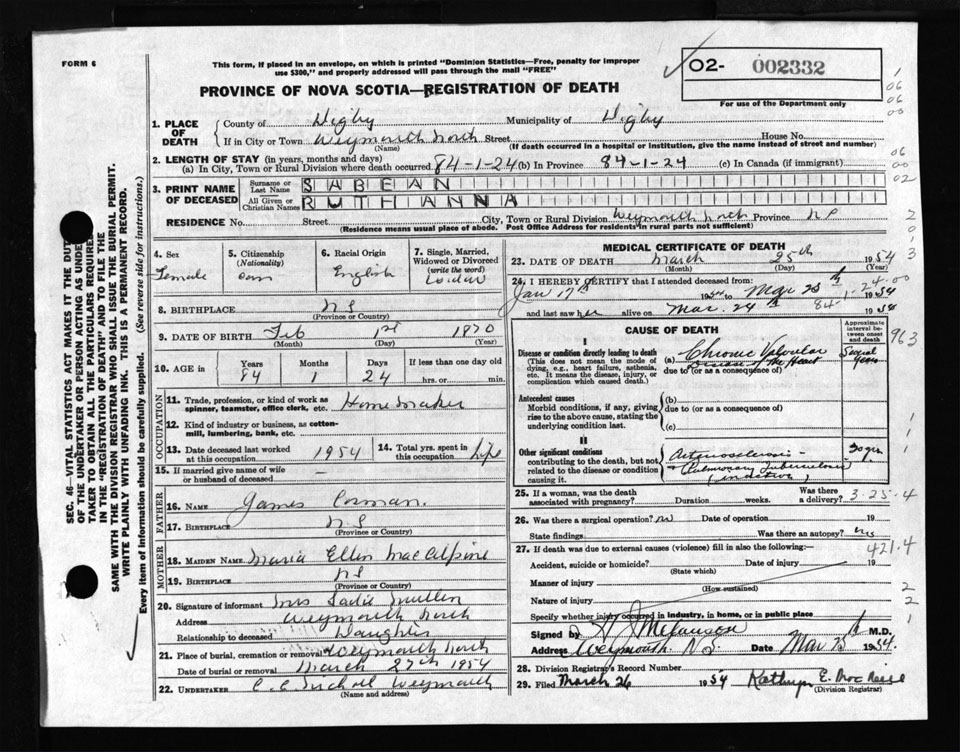 FORM 6
This form, if placed in an envelope, on which is printed "Dominion Statistics—Free, penalty for improper
use $300," and properly addressed will pass through the mail "FREE"
O2- 002332
PROVINCE OF NOVA SCOTIA—REGISTRATION OF DEATH
For use of the Department only
1. PLACE OF DEATH
County of Digby Municipality of Digby
If in City or Town Weymouth North Street House No.
(Name) (If death occurred in a hospital or institution, give the name instead of street and number)
2. LENGTH OF STAY (in years, months and days)
(a) In City, Town or Rural Division where death occurred 84-1-24 (b) In Province 84-1-24 (c) In Canada (if immigrant)
3. PRINT NAME OF DECEASED
Surname or Last Name SABEAN
All Given or Christian Names RUTH ANNA
RESIDENCE No. Street City, Town or Rural Division Weymouth North Province N S
(Residence means usual place of abode. Post Office Address for residents in rural parts not sufficient)
4. Sex
Female
5. Citizenship (Nationality)
Can
6. Racial Origin
English
7. Single, Married, Widowed or Divorced (write the word)
Widow
8. BIRTHPLACE N S
(Province or Country)
9. DATE OF BIRTH Feb 1st 1870
(Month) (Day) (Year)
10. AGE in Years Months Days If less than one day old
84 1 24 hrs. or min.
OCCUPATION
11. Trade, profession, or kind of work as spinner, teamster, office clerk, etc. Home Maker
12. Kind of industry or business, as cotton-mill, lumbering, bank, etc.
13. Date deceased last worked at this occupation 1954
14. Total yrs. spent in this occupation Life
15. If married give name of wife or husband of deceased –
FATHER
16. NAME James
17. BIRTHPLACE N S
(Province or Country)
MOTHER
18. MAIDEN NAME Maria Ellen MacAlpine
19. BIRTHPLACE N S
(Province or Country)
20. Signature of informant Mrs Sadie Mullen
Address Weymouth North
Relationship to deceased Daughter
21. Place of burial, cremation or removal Weymouth North
Date of burial or removal March 27th 1954
22. UNDERTAKER Weymouth
(Name and address)
MEDICAL CERTIFICATE OF DEATH
23. DATE OF DEATH March 25th 1954
(Month) (Day) (Year)
24. I HEREBY CERTIFY that I attended deceased from:
Jan 17th to Mar 25th 1954
and last saw her alive on Mar. 24th 1954
CAUSE OF DEATH
Approximate interval between onset and death
I
Disease or condition directly leading to death
(This does not mean the mode of dying, e.g., heart failure, asthenia, etc. It means the disease, injury, or complication which caused death.)
(a) Chronic Valvular
Disease of the Heart
due to (or as a consequence of)
Several years
Antecedent causes
Morbid conditions, if any, giving rise to the above cause, stating the underlying condition last
(b)
due to (or as a consequence of)
(c)
II
Other significant conditions
contributing to the death, but not related to the disease or condition causing it.
Arteriosclerosis -
Pulmonary Tuberculosis
(inactive)
25. If a woman, was the death associated with pregnancy? Duration weeks. Was there a delivery?
3-25-4
26. Was there a surgical operation? no Date of operation 19
State findings Was there an autopsy?
27. If death was due to external causes (violence) fill in also the following:—
421.4
Accident, suicide or homicide? Date of injury 19
(State which)
Manner of injury
(How sustained)
Nature of injury
Specify whether injury occurred in industry, in home, or in public place
Signed by M.D.
Address Weymouth N.S. Date Mar 25th 1954.
28. Division Registrar's Record Number
29. Filed March 26 1954 Kathryn E.
(Division Registrar)
SEC. 46—VITAL STATISTICS ACT MAKES IT THE DUTY
OF THE UNDERTAKER OR PERSON ACTING AS UNDERTAKER TO OBTAIN ALL THE PARTICULARS REQUIRED
IN THE "REGISTRATION OF DEATH" AND TO FILE THE
SAME WITH THE DIVISION REGISTRAR WHO SHALL ISSUE THE BURIAL PERMIT.
WRITE PLAINLY WITH UNFADING INK. THIS IS A PERMANENT RECORD.
Every item of information should be carefully supplied. (See reverse side for instructions.)
963